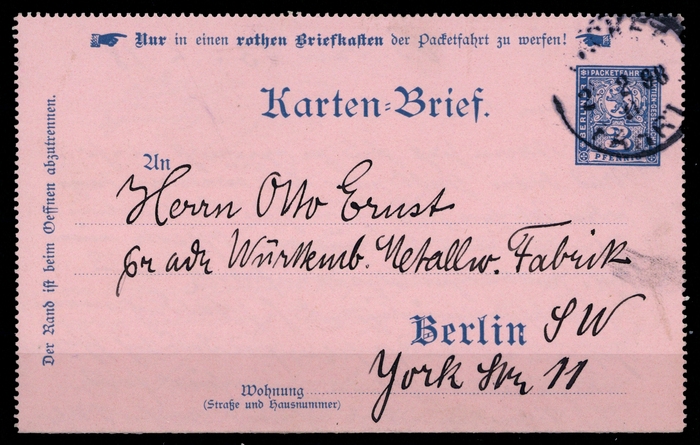 Nur in einen rothen Briefkasten der Packetfahrt zu werfen!
Karten-Brief.
PACKETFAHRT
BERLIN
3
PFENNIG
An
Herrn Otto Ernst
pr adr Württemb. Metallw. Fabrik
Berlin SW
York Str 11
Wohnung
(Straße und Hausnummer)
Der Rand ist beim Oeffnen abzutrennen.